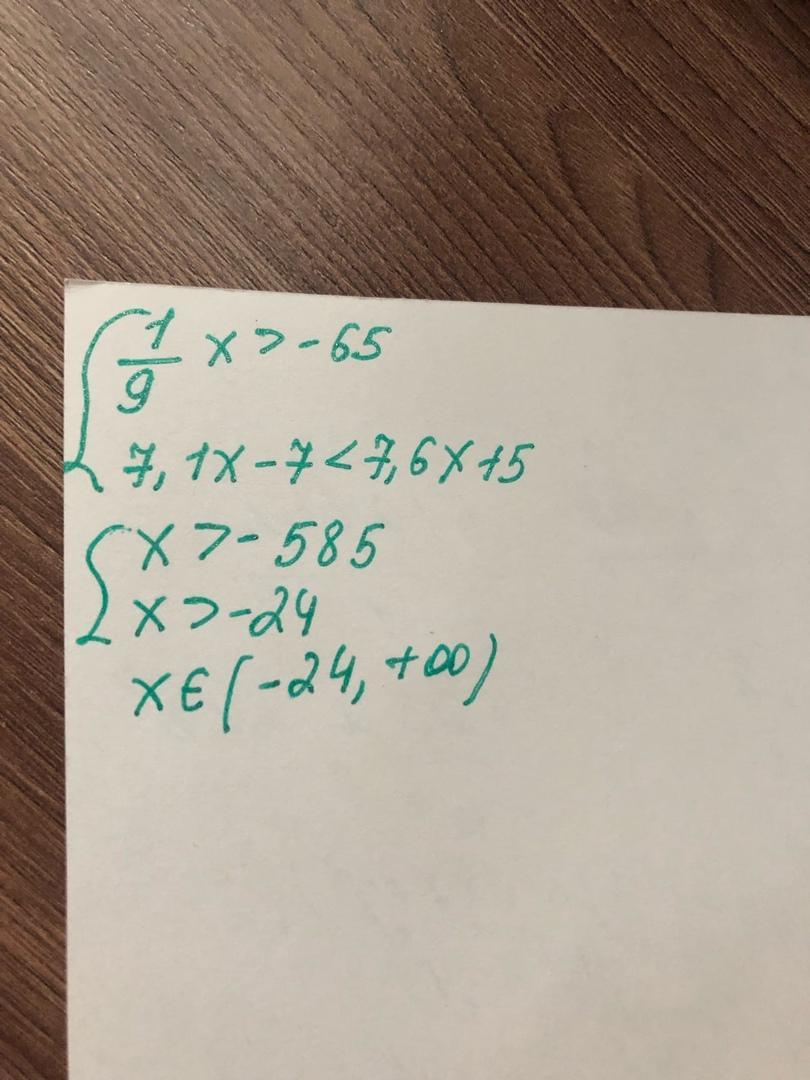 1/9 x > -65
7,1x - 7 < 7,6x + 5
x > - 585
x > -24
x ∈ (-24, +∞)